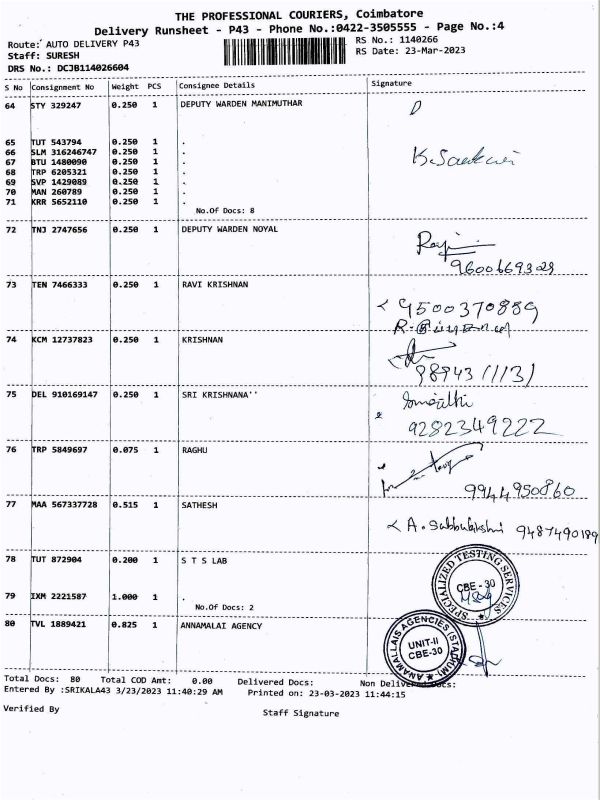 THE PROFESSIONAL COURIERS, Coimbatore
Delivery Runsheet - P43 - Phone No.:0422-3505555 - Page No.:4
Route: AUTO DELIVERY P43 RS No.: 1140266
Staff: SURESH RS Date: 23-Mar-2023
DRS No.: DCJB114026604
S No Consignment No Weight PCS Consignee Details Signature
64 STY 329247 0.250 1 DEPUTY WARDEN MANIMUTHAR
65 TUT 543794 0.250 1 .
66 SLM 316246747 0.250 1 .
67 BTU 1480090 0.250 1 .
68 TRP 6205321 0.250 1 .
69 SVP 1429089 0.250 1 .
70 MAN 260789 0.250 1 .
71 KRR 5652110 0.250 1 .
No.Of Docs: 8
72 TNJ 2747656 0.250 1 DEPUTY WARDEN NOYAL
9600669329
73 TEN 7466333 0.250 1 RAVI KRISHNAN
9500370889
74 KCM 12737823 0.250 1 KRISHNAN
9894311131
75 DEL 910169147 0.250 1 SRI KRISHNANA''
9282349222
76 TRP 5849697 0.075 1 RAGHU
9944950860
77 MAA 567337728 0.515 1 SATHESH
A. Subbulakshmi 9487490189
78 TUT 872904 0.200 1 S T S LAB
SPECIALIZED TESTING SERVICES
CBE - 30
79 IXM 2221587 1.000 1 .
No.Of Docs: 2
80 TVL 1889421 0.825 1 ANNAMALAI AGENCY
ANAMALLAIS AGENCIES (STADIUM)
UNIT-II
CBE-30
Total Docs: 80 Total COD Amt: 0.00 Delivered Docs: Non Delivered Docs:
Entered By :SRIKALA43 3/23/2023 11:40:29 AM Printed on: 23-03-2023 11:44:15
Verified By Staff Signature